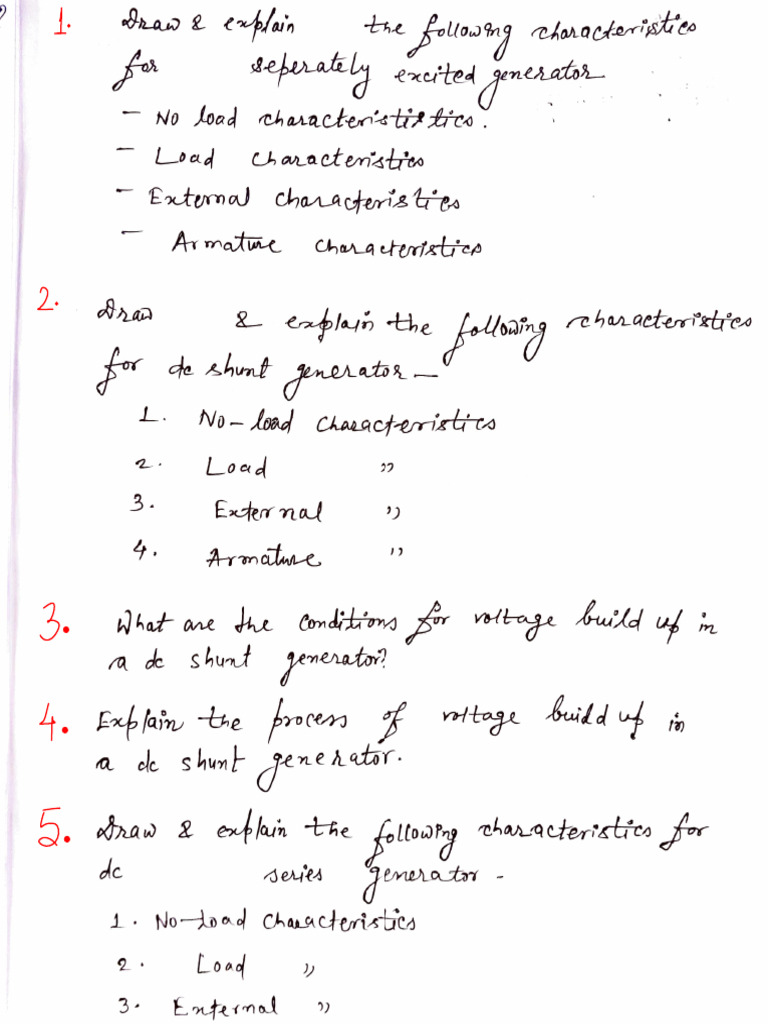 1. Draw & explain the following characteristics
for seperately excited generator
- No load characterististics.
- Load characteristics
- External characteristics
- Armature characteristics
2. Draw & explain the following characteristics
for dc shunt generator —
1. No-load characteristics
2. Load "
3. External "
4. Armature "
3. What are the conditions for voltage build up in
a dc shunt generator?
4. Explain the process of voltage build up in
a dc shunt generator.
5. Draw & explain the following characteristics for
dc series generator -
1. No-load characteristics
2. Load "
3. External "